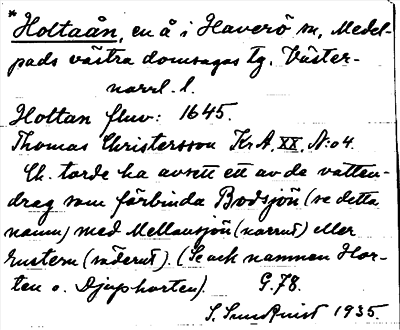 * Holtaån, en å i Haverö sn, Medel-
pads västra domsagas tg. Väster-
norrl. l.
Holtan fluv: 1645.
Thomas Christersson KrA, XX, N:o 4.
Ch. torde ha avsett ett av de vatten-
drag som förbinda Bodsjön (se detta
namn) med Mellansjön (norrut) eller
(söderut). (Se ock namnen Hor-
ten o. Djuphorten). G.78.
S. Sundqvist 1935.